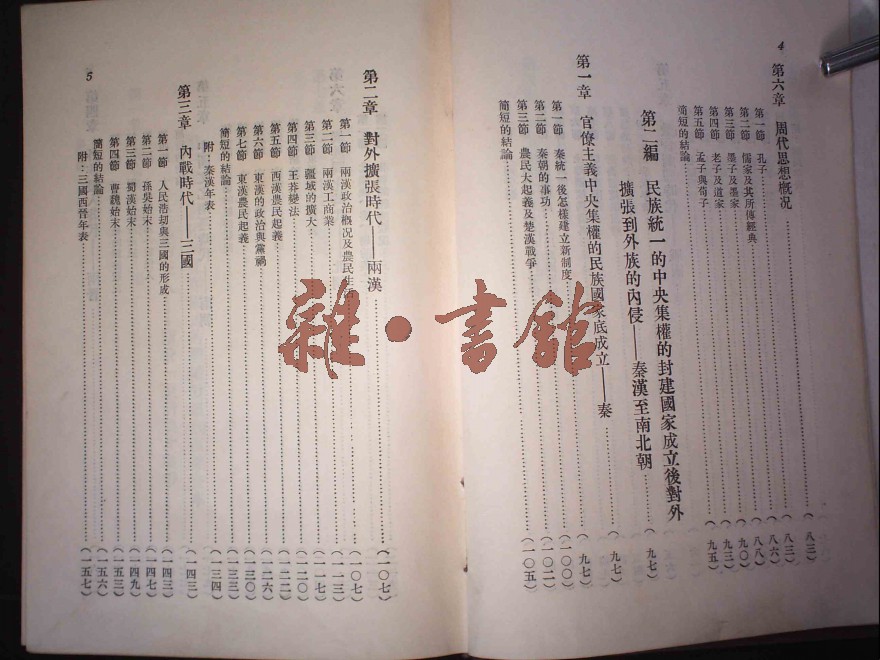 4
第六章 周代思想概況……(八三)
第一節 孔子……(八三)
第二節 儒家及其所傳經典……(八六)
第三節 墨子及墨家……(八八)
第四節 老子及道家……(九〇)
第五節 孟子與荀子……(九三)
簡短的結論……(九五)
第二編 民族統一的中央集權的封建國家成立後對外
擴張到外族的內侵——秦漢至南北朝……(九七)
第一章 官僚主義中央集權的民族國家底成立——秦……(九七)
第一節 秦統一後怎樣建立新制度……(九七)
第二節 秦朝的事功……(一〇〇)
第三節 農民大起義及楚漢戰爭……(一〇二)
簡短的結論……(一〇五)
第二章 對外擴張時代——兩漢……(一〇七)
第一節 兩漢政治概況及農民生活……(一〇七)
第二節 兩漢工商業……(一一三)
第三節 疆域的擴大……(一一七)
第四節 王莽變法……(一二〇)
第五節 西漢農民起義……(一二二)
第六節 東漢的政治與黨禍……(一二六)
第七節 東漢農民起義……(一三〇)
簡短的結論……(一三三)
附：秦漢年表……(一三四)
第三章 內戰時代——三國……(一四三)
第一節 人民浩劫與三國的形成……(一四三)
第二節 孫吳始末……(一四七)
第三節 蜀漢始末……(一四九)
第四節 曹魏始末……(一五三)
簡短的結論……(一五六)
附：三國西晉年表……(一五七)
5
雜·書館